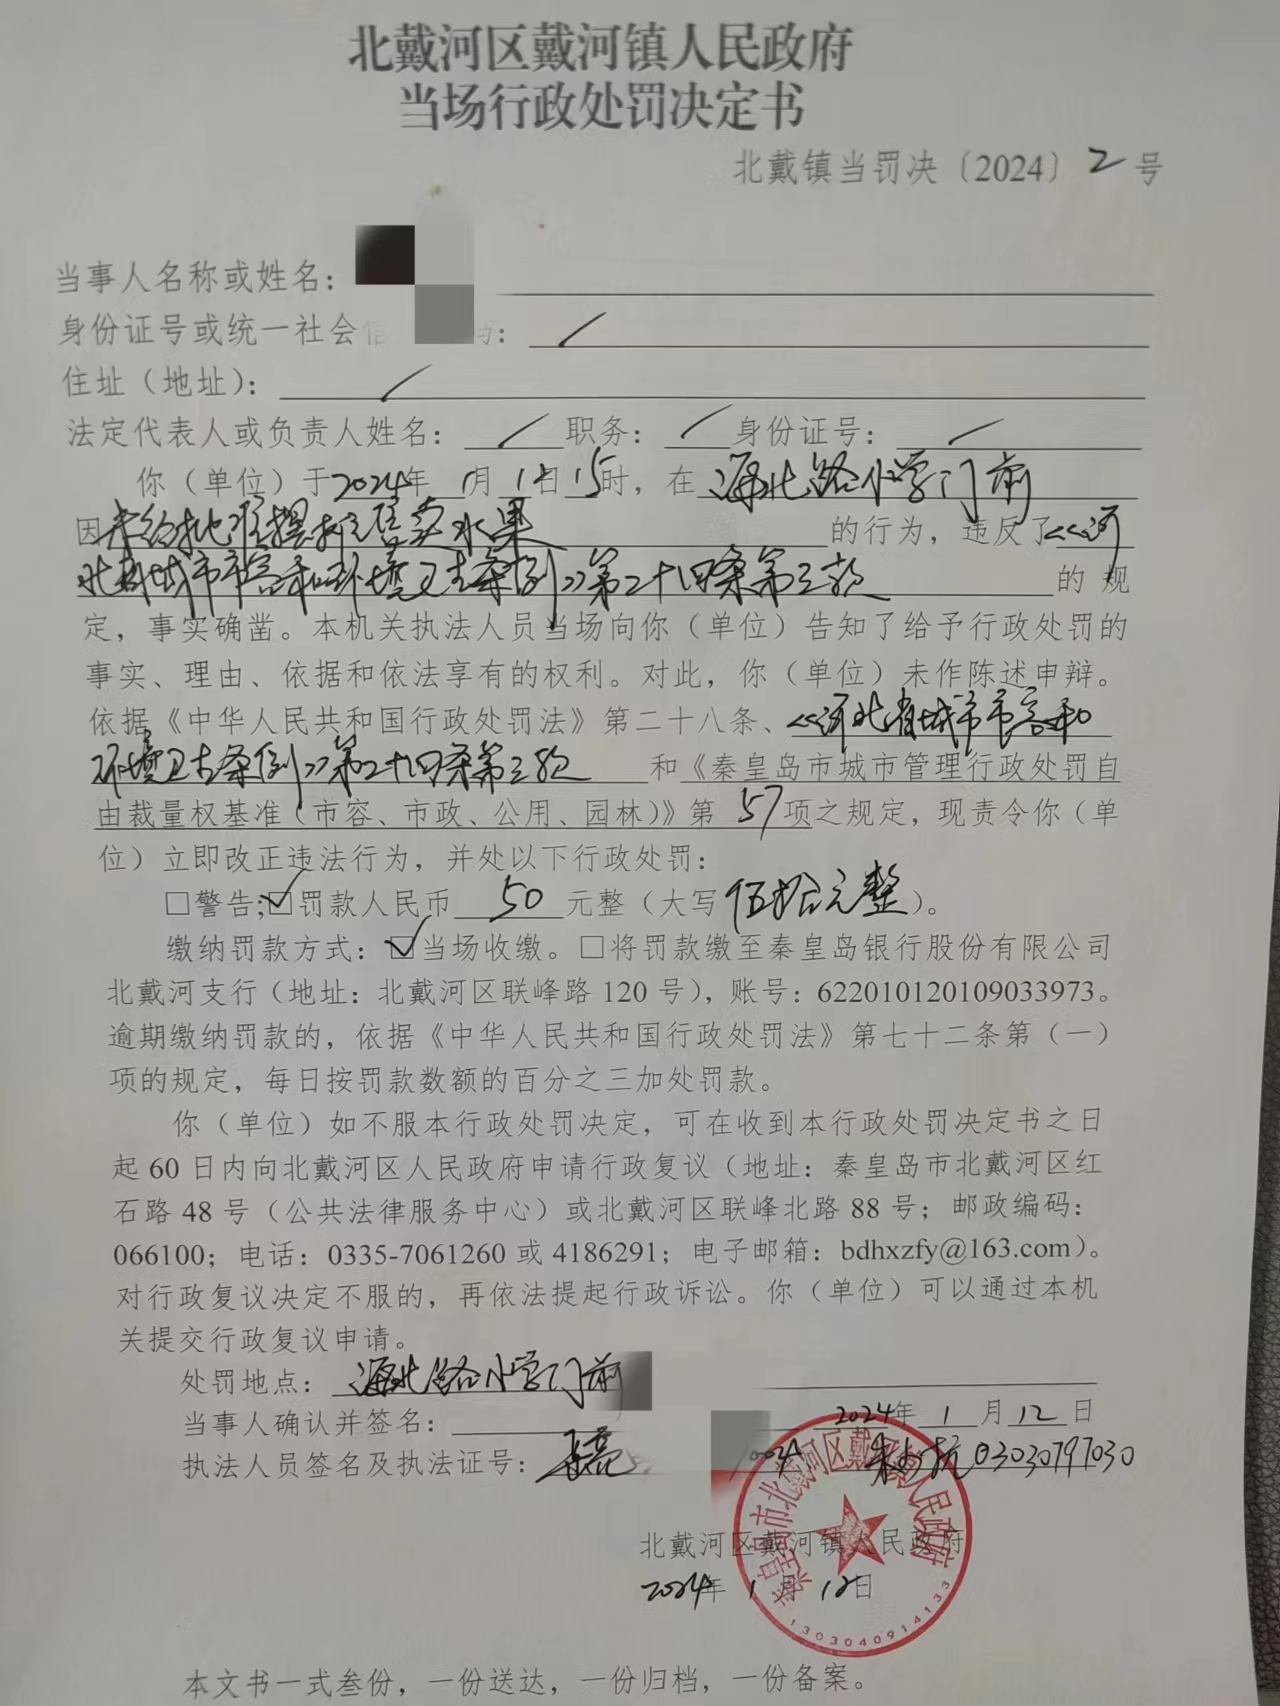 北戴河区戴河镇人民政府
当场行政处罚决定书
北戴镇当罚决〔2024〕2号
当事人名称或姓名：
身份证号或统一社会
住址（地址）：
法定代表人或负责人姓名： 职务： 身份证号：
你（单位）于2024年1月12日15时，在海北路小学门前
因未经批准摆摊售卖水果的行为，违反了《河
北省城市市容和环境卫生条例》第二十四条第三款的规
定，事实确凿。本机关执法人员当场向你（单位）告知了给予行政处罚的
事实、理由、依据和依法享有的权利。对此，你（单位）未作陈述申辩。
依据《中华人民共和国行政处罚法》第二十八条、《河北省城市市容和
环境卫生条例》第二十四条第三款和《秦皇岛市城市管理行政处罚自
由裁量权基准（市容、市政、公用、园林）》第57项之规定，现责令你（单
位）立即改正违法行为，并处以下行政处罚：
□警告;☑罚款人民币50元整（大写伍拾元整）。
缴纳罚款方式：☑当场收缴。□将罚款缴至秦皇岛银行股份有限公司
北戴河支行（地址：北戴河区联峰路120号），账号：622010120109033973。
逾期缴纳罚款的，依据《中华人民共和国行政处罚法》第七十二条第（一）
项的规定，每日按罚款数额的百分之三加处罚款。
你（单位）如不服本行政处罚决定，可在收到本行政处罚决定书之日
起60日内向北戴河区人民政府申请行政复议（地址：秦皇岛市北戴河区红
石路48号（公共法律服务中心）或北戴河区联峰北路88号；邮政编码：
066100；电话：0335-7061260或4186291；电子邮箱：bdhxzfy@163.com）。
对行政复议决定不服的，再依法提起行政诉讼。你（单位）可以通过本机
关提交行政复议申请。
处罚地点：海北路小学门前
当事人确认并签名： 2024年1月12日
执法人员签名及执法证号： 03030797030
北戴河区戴河镇人民政府
2024年1月12日
秦皇岛市北戴河区戴河镇人民政府
1303040914133
本文书一式叁份，一份送达，一份归档，一份备案。